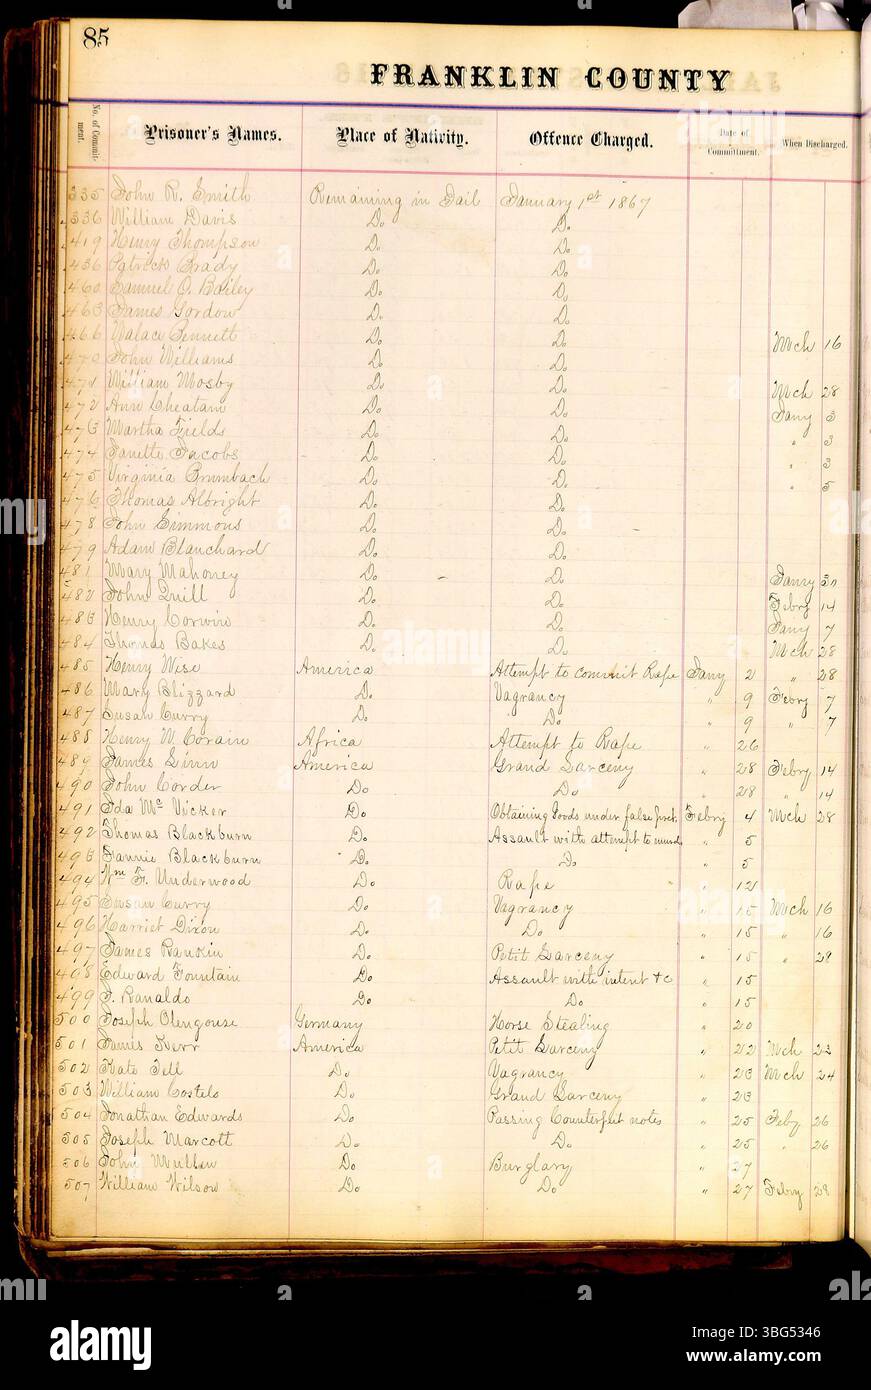 85
FRANKLIN COUNTY
No. of Commitment. Prisoner's Names. Place of Nativity. Offence Charged. Date of Commitment. When Discharged.
335 John R. Smith Remaining in Jail January 1st 1867
336 William Davis Do Do
419 Henry Thompson Do Do
436 Patrick Brady Do Do
460 Samuel O. Bailey Do Do
463 James Gordon Do Do
466 Walace Bennett Do Do Mch 16
470 John Williams Do Do
471 William Mosby Do Do Mch 28
472 Ann Cheatam Do Do Jany 3
473 Martha Fields Do Do " 3
474 Janette Jacobs Do Do " 3
475 Virginia Brumbach Do Do " 5
476 Thomas Albright Do Do
478 John Simmons Do Do
479 Adam Blanchard Do Do
481 Mary Mahoney Do Do Janry
482 John Quill Do Do Febry 14
483 Henry Corwin Do Do Jany 7
484 Thomas Bakes Do Do Mch 28
485 Henry Wise America Attempt to commit Rape Jany 2 " 28
486 Mary Blizzard Do Vagrancy " 9 Febry 7
487 Susan Curry Do Do " 9 " 7
488 Henry W. Corain Africa Attempt to Rape " 26
489 James Linn America Grand Larceny " 28 Febry 14
490 John Corder Do Do " 28 " 14
491 Ida Mc Vicker Do Obtaining Goods under false pret. Febry 4 Mch 28
492 Thomas Blackburn Do Assault with attempt to murd " 5
493 Fannie Blackburn Do Do " 5
494 Wm F. Underwood Do Rape " 12
495 Susan Curry Do Vagrancy " 15 Mch 16
496 Harriet Dixon Do Do " 15 " 16
497 James Rankin Do Petit Larceny " 15 " 28
498 Edward Fountain Do Assault with intent &c " 15
499 F. Ranaldo Do Do " 15
500 Joseph Olengouse Germany Horse Stealing " 20
501 James Kerr America Petit Larceny " 22 Mch 23
502 Kate Tell Do Vagrancy " 23 Mch 24
503 William Costelo Do Grand Larceny " 23
504 Jonathan Edwards Do Passing Counterfeit notes " 25 Feby 26
505 Joseph Marcott Do Do " 25 " 26
506 John Mullen Do Burglary " 27
507 William Wilson Do Do " 27 Febry 28
alamy
Image ID: 3BG5346
www.alamy.com